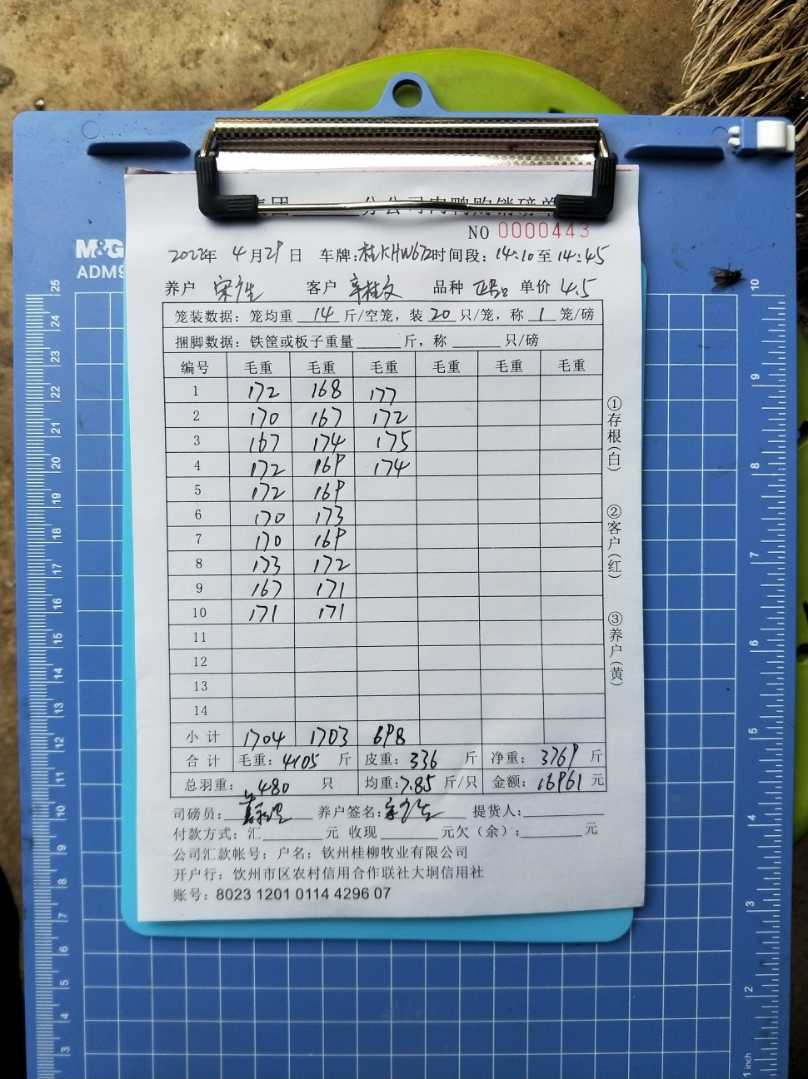 M&G
ADM9
集团 分公司肉鸭购销磅单
NO 0000443
2022年 4月29日 车牌:桂KHW672 时间段:14:10至14:45
养户 宋广生 客户 辛桂文 品种 单价 4.5
笼装数据:笼均重 14 斤/空笼,装 20 只/笼,称 1 笼/磅
捆脚数据:铁筐或板子重量 斤,称 只/磅
编号 毛重 毛重 毛重 毛重 毛重 毛重
1 172 168 177
2 170 167 172
3 167 174 175
4 172 169 174
5 172 169
6 170 173
7 170 169
8 173 172
9 167 171
10 171 171
11
12
13
14
小计 1704 1703 698
合计 毛重:4105 斤 皮重:336 斤 净重:3769 斤
总羽重:480 只 均重:7.85 斤/只 金额:16961 元
司磅员: 养户签名:宋广生 提货人:
付款方式:汇 元 收现 元欠(余): 元
公司汇款帐号:户名:钦州桂柳牧业有限公司
开户行:钦州市区农村信用合作联社大垌信用社
账号:8023 1201 0114 4296 07
①存根(白)
②客户(红)
③养户(黄)
25
24
23
22
21
20
19
18
17
16
15
14
13
12
11
10
9
8
7
6
5
4
3
10
9
8
7
6
5
4
3
2
1 inch